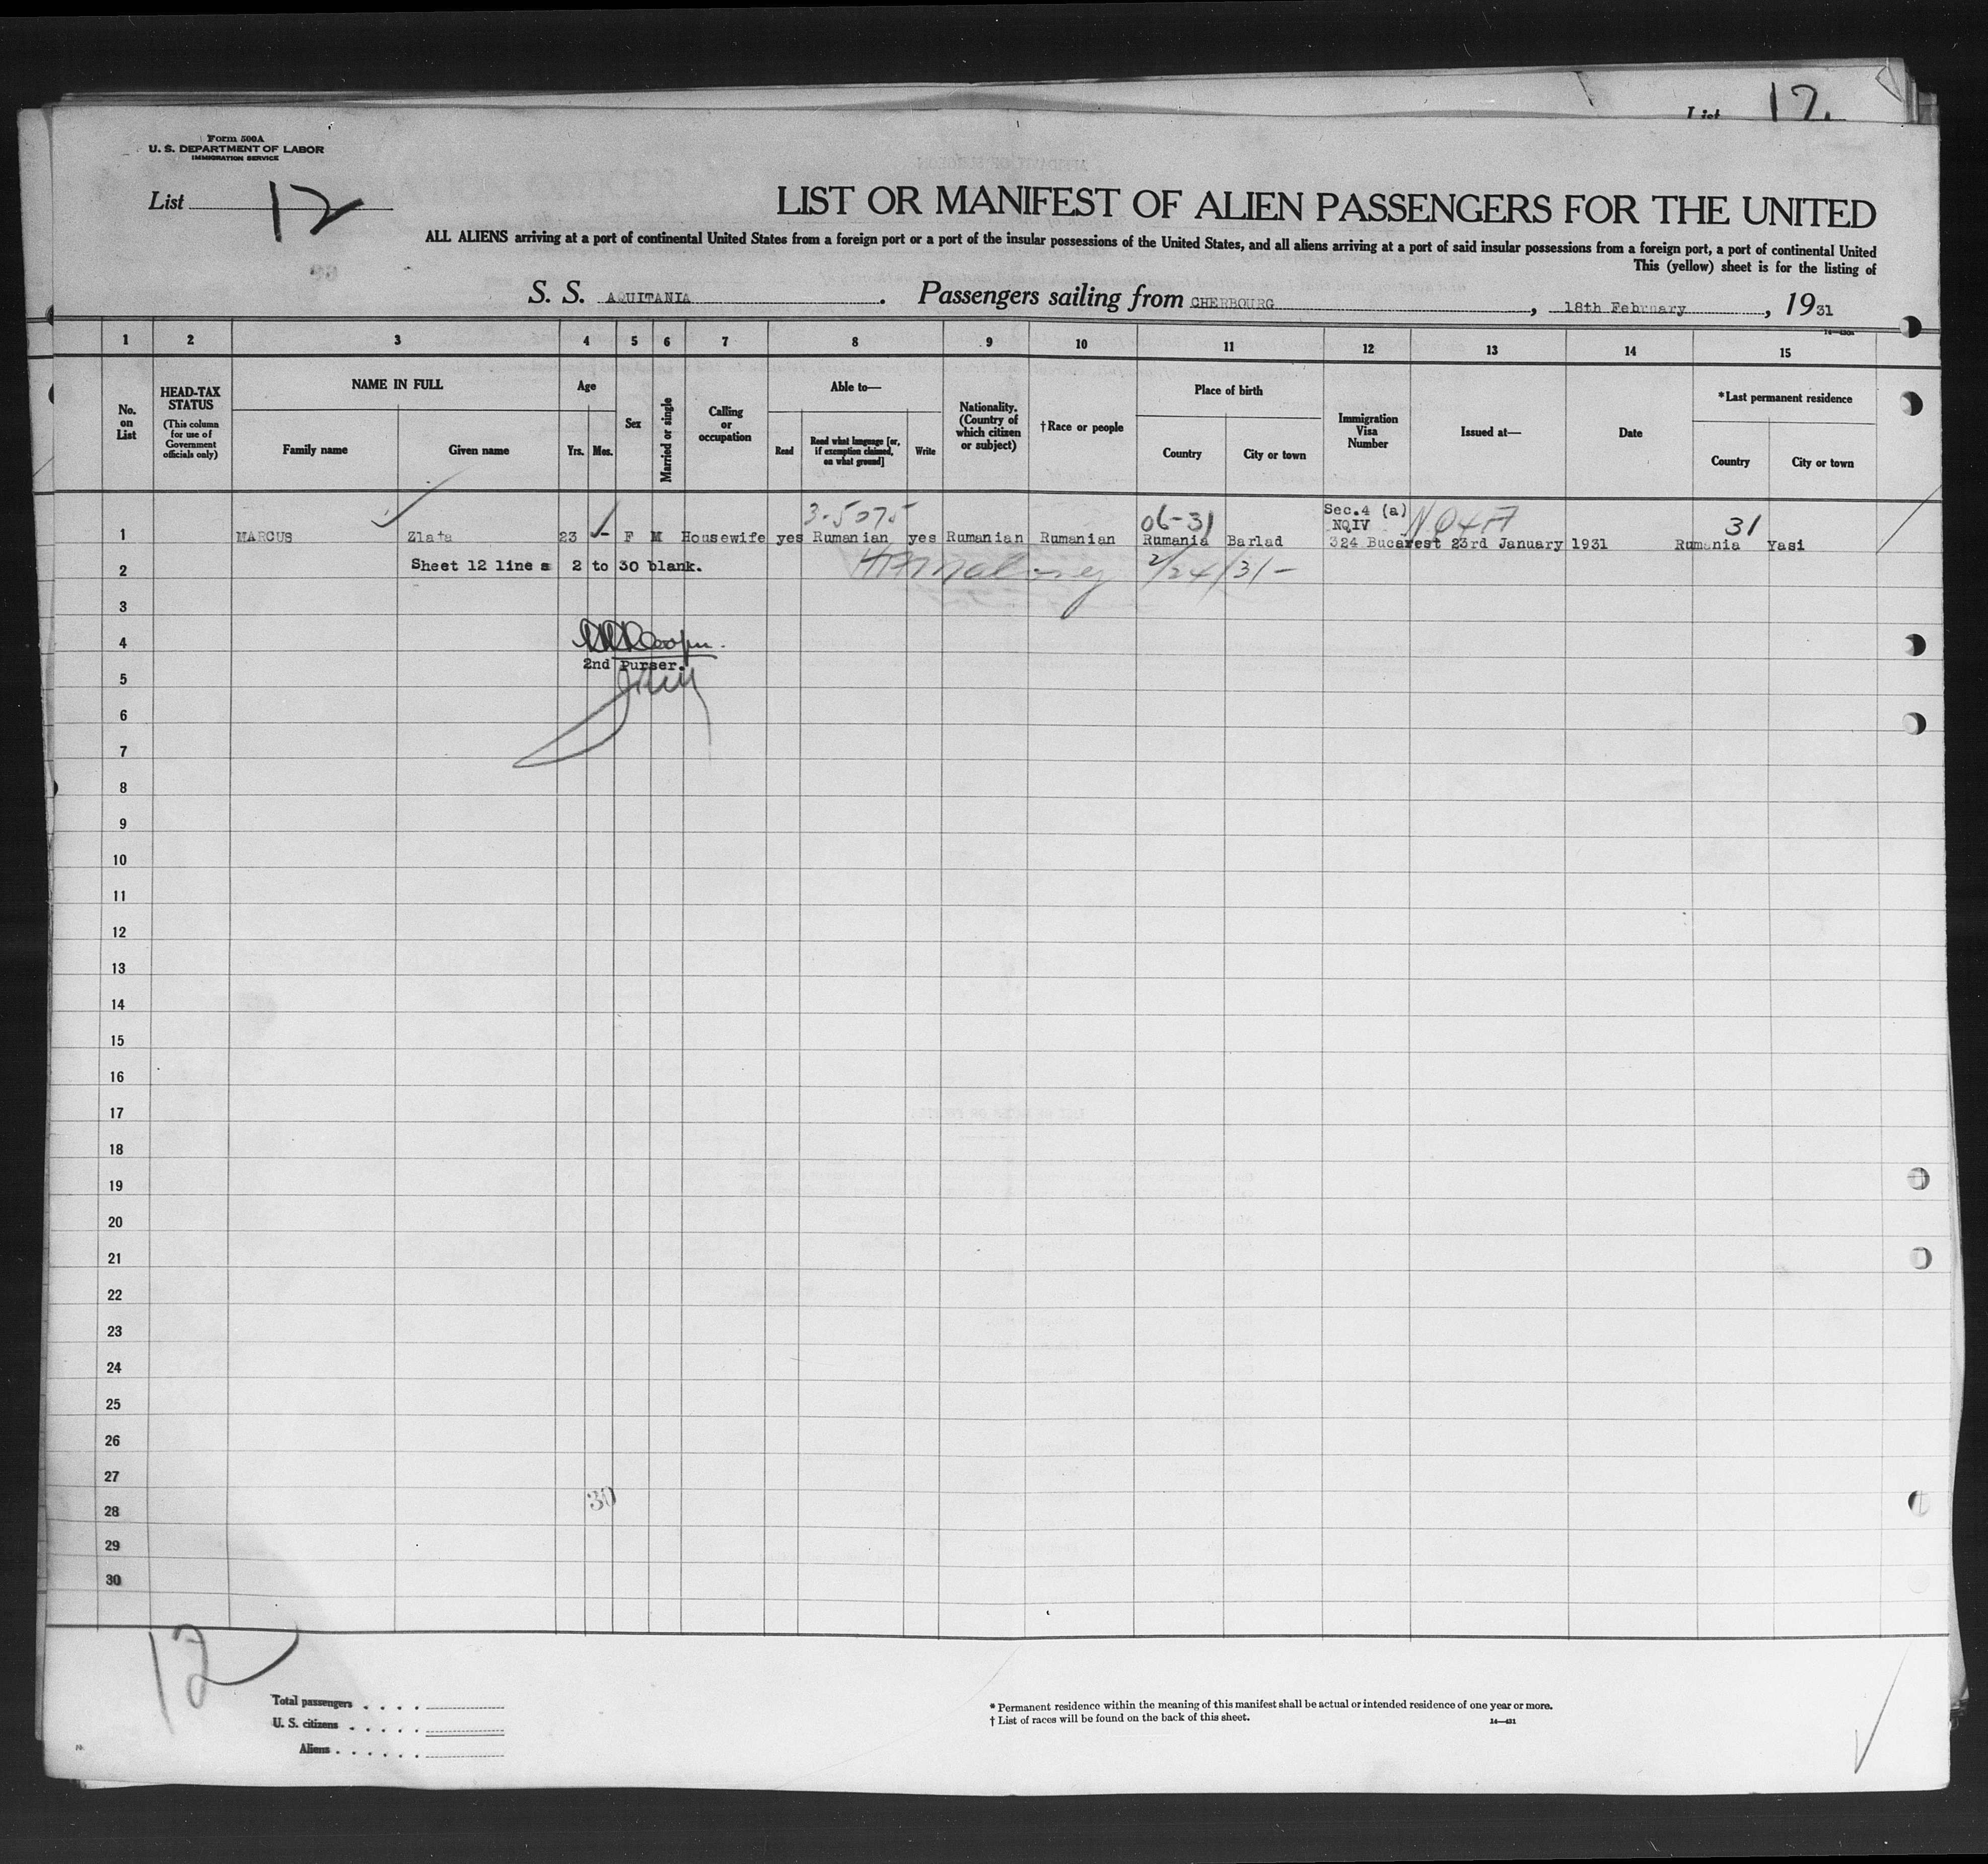 List 12.
Form 500A
U. S. DEPARTMENT OF LABOR
IMMIGRATION SERVICE
List 12
LIST OR MANIFEST OF ALIEN PASSENGERS FOR THE UNITED
ALL ALIENS arriving at a port of continental United States from a foreign port or a port of the insular possessions of the United States, and all aliens arriving at a port of said insular possessions from a foreign port, a port of continental United
This (yellow) sheet is for the listing of
S. S. AQUITANIA. Passengers sailing from CHERBOURG, 18th February, 1931
1 2 3 4 5 6 7 8 9 10 11 12 13 14 15
No. on List
HEAD-TAX STATUS
(This column for use of Government officials only)
NAME IN FULL
Family name Given name
Age
Yrs. Mos.
Sex
Married or single
Calling or occupation
Able to—
Read
Read what language [or, if exemption claimed, on what ground]
Write
Nationality. (Country of which citizen or subject)
†Race or people
Place of birth
Country City or town
Immigration Visa Number
Issued at—
Date
*Last permanent residence
Country City or town
3-5075 06-31 Sec.4 (a) 31
NQIV
1 MARCUS Zlata 23 - F M Housewife yes Rumanian yes Rumanian Rumanian Rumania Barlad 324 Bucarest 23rd January 1931 Rumania Yasi
2 Sheet 12 line s 2 to 30 blank. 2/24/31-
3
4
2nd Purser.
5
6
7
8
9
10
11
12
13
14
15
16
17
18
19
20
21
22
23
24
25
26
27
30
28
29
30
12
Total passengers . . . .
U. S. citizens . . . . .
Aliens . . . . . .
* Permanent residence within the meaning of this manifest shall be actual or intended residence of one year or more.
† List of races will be found on the back of this sheet.
14—431